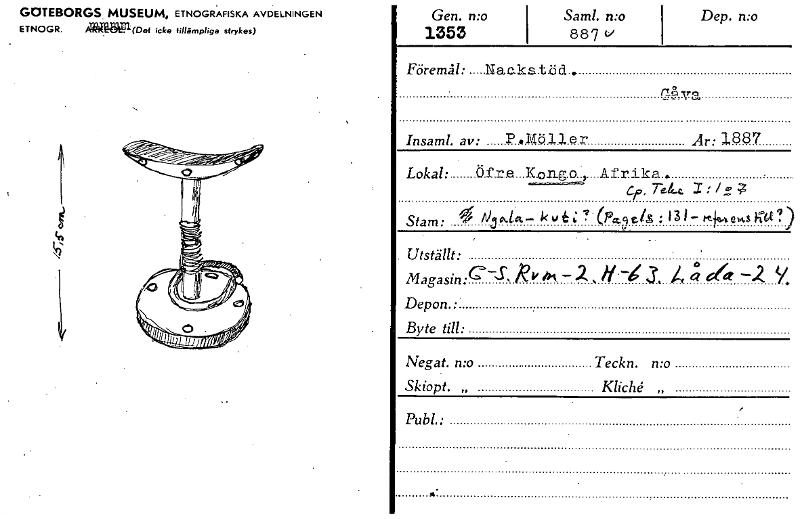 GÖTEBORGS MUSEUM, ETNOGRAFISKA AVDELNINGEN
ETNOGR. ARKEOL. (Det icke tillämpliga strykes)
15,5 cm
Gen. n:o Saml. n:o Dep. n:o
1353 887
Föremål: Nackstöd.
Gåva
Insaml. av: P.Möller År: 1887
Lokal: Öfre Kongo, Afrika.
Cp. Teke I:127
Stam: Ngala-kuti? (Pagels: 131-referens till?)
Utställt:
Magasin: G-S. Rum-2. H-63. Låda-24.
Depon.:
Byte till:
Negat. n:o Teckn. n:o
Skiopt. „ Kliché „
Publ.: